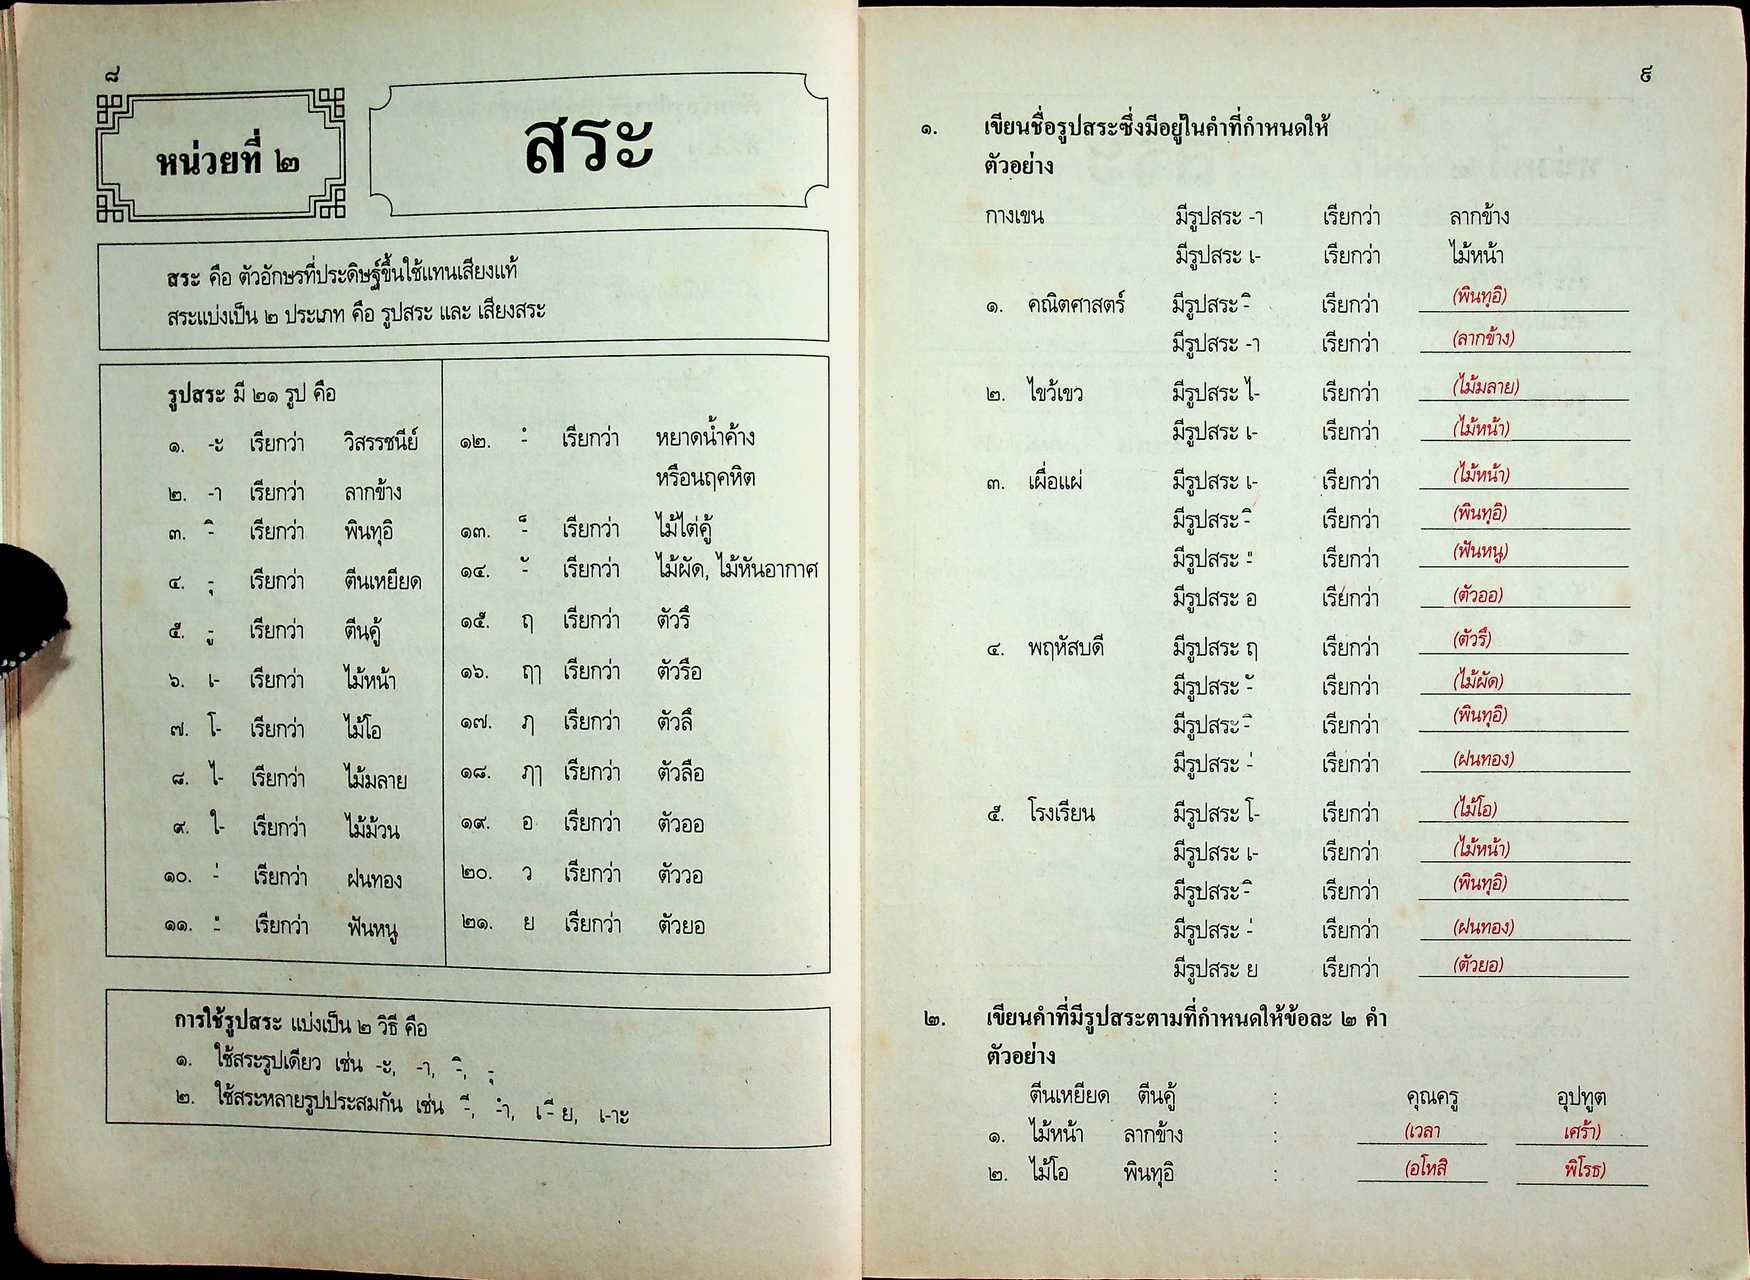 ๘
หน่วยที่ ๒
สระ
สระ คือ ตัวอักษรที่ประดิษฐ์ขึ้นใช้แทนเสียงแท้
สระแบ่งเป็น ๒ ประเภท คือ รูปสระ และ เสียงสระ
รูปสระ มี ๒๑ รูป คือ
๑. -ะ เรียกว่า วิสรรชนีย์
๒. -า เรียกว่า ลากข้าง
๓. -ิ เรียกว่า พินทุอิ
๔. -ุ เรียกว่า ตีนเหยียด
๕. -ู เรียกว่า ตีนคู้
๖. เ- เรียกว่า ไม้หน้า
๗. โ- เรียกว่า ไม้โอ
๘. ไ- เรียกว่า ไม้มลาย
๙. ใ- เรียกว่า ไม้ม้วน
๑๐. -่ เรียกว่า ฝนทอง
๑๑. -" เรียกว่า ฟันหนู
๑๒. -ํ เรียกว่า หยาดน้ำค้าง
หรือนฤคหิต
๑๓. -็ เรียกว่า ไม้ไต่คู้
๑๔. -ั เรียกว่า ไม้ผัด, ไม้หันอากาศ
๑๕. ฤ เรียกว่า ตัวรึ
๑๖. ฤๅ เรียกว่า ตัวรือ
๑๗. ฦ เรียกว่า ตัวลึ
๑๘. ฦๅ เรียกว่า ตัวลือ
๑๙. อ เรียกว่า ตัวออ
๒๐. ว เรียกว่า ตัววอ
๒๑. ย เรียกว่า ตัวยอ
การใช้รูปสระ แบ่งเป็น ๒ วิธี คือ
๑. ใช้สระรูปเดียว เช่น -ะ, -า, -ิ, -ุ
๒. ใช้สระหลายรูปประสมกัน เช่น -ี, -ำ, เ-ีย, เ-าะ
๙
๑. เขียนชื่อรูปสระซึ่งมีอยู่ในคำที่กำหนดให้
ตัวอย่าง
กางเขน มีรูปสระ -า เรียกว่า ลากข้าง
มีรูปสระ เ- เรียกว่า ไม้หน้า
๑. คณิตศาสตร์ มีรูปสระ -ิ เรียกว่า (พินทุอิ)
มีรูปสระ -า เรียกว่า (ลากข้าง)
๒. ไขว้เขว มีรูปสระ ไ- เรียกว่า (ไม้มลาย)
มีรูปสระ เ- เรียกว่า (ไม้หน้า)
๓. เผื่อแผ่ มีรูปสระ เ- เรียกว่า (ไม้หน้า)
มีรูปสระ -ิ เรียกว่า (พินทุอิ)
มีรูปสระ -" เรียกว่า (ฟันหนู)
มีรูปสระ อ เรียกว่า (ตัวออ)
๔. พฤหัสบดี มีรูปสระ ฤ เรียกว่า (ตัวรึ)
มีรูปสระ -ั เรียกว่า (ไม้ผัด)
มีรูปสระ -ิ เรียกว่า (พินทุอิ)
มีรูปสระ -่ เรียกว่า (ฝนทอง)
๕. โรงเรียน มีรูปสระ โ- เรียกว่า (ไม้โอ)
มีรูปสระ เ- เรียกว่า (ไม้หน้า)
มีรูปสระ -ิ เรียกว่า (พินทุอิ)
มีรูปสระ -่ เรียกว่า (ฝนทอง)
มีรูปสระ ย เรียกว่า (ตัวยอ)
๒. เขียนคำที่มีรูปสระตามที่กำหนดให้ข้อละ ๒ คำ
ตัวอย่าง
ตีนเหยียด ตีนคู้ : คุณครู อุปทูต
๑. ไม้หน้า ลากข้าง : (เวลา เศร้า)
๒. ไม้โอ พินทุอิ : (อโหสิ พิโรธ)